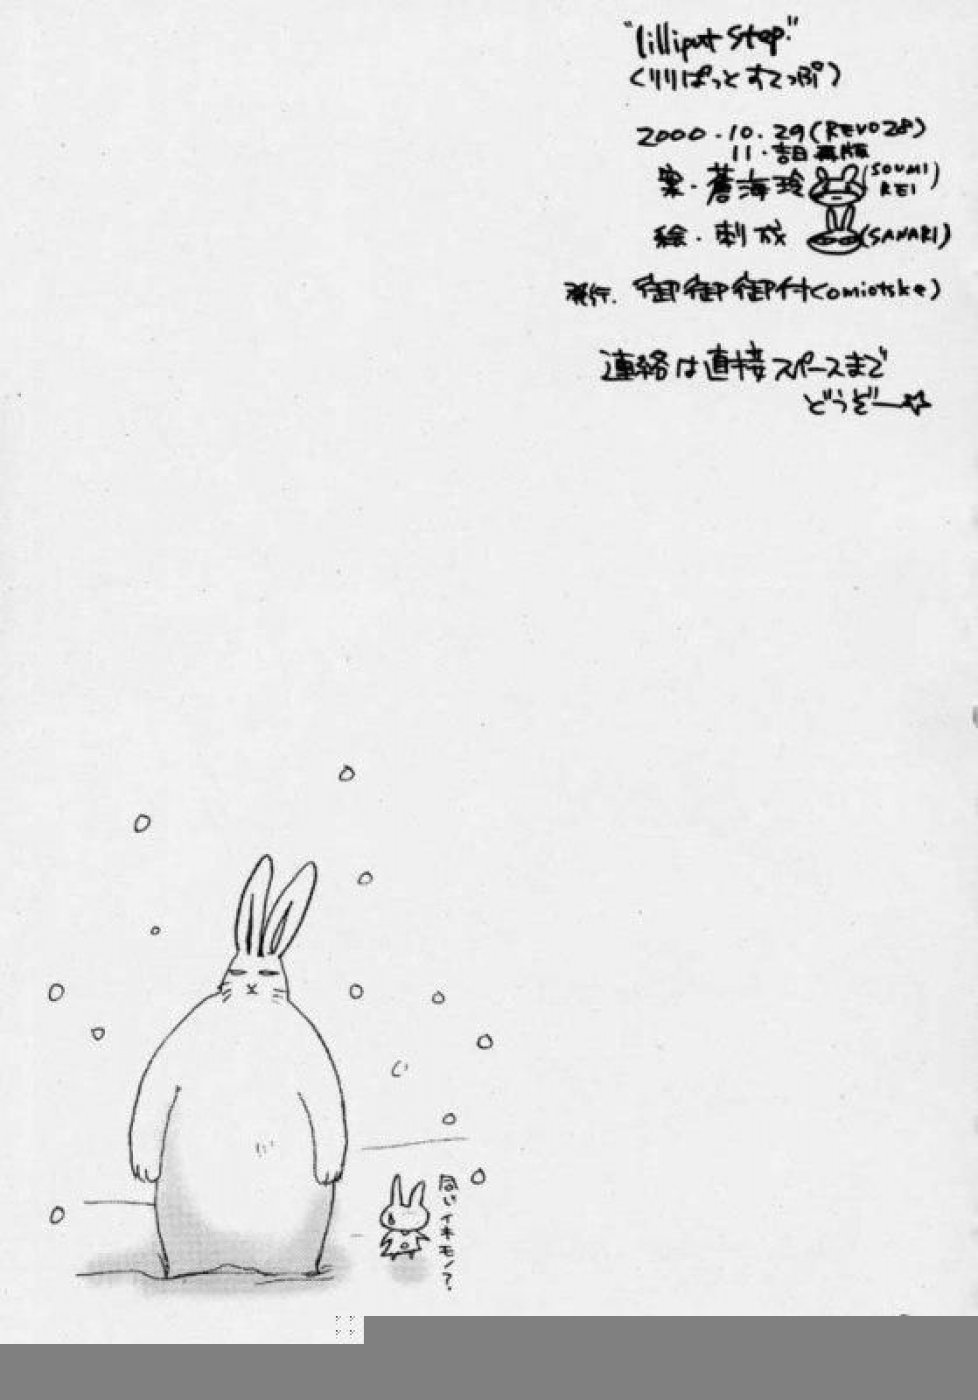 "lilliput step."
(りりぱっとすてっぷ)
2000.10.29(REVO28)
11.吉日 再版
案・蒼海玲(SOUMI REI)
絵・刺成(SANARI)
発行.御御御付(omiotske)
連絡は直接スペースまで
どうぞー☆
イキモノ?